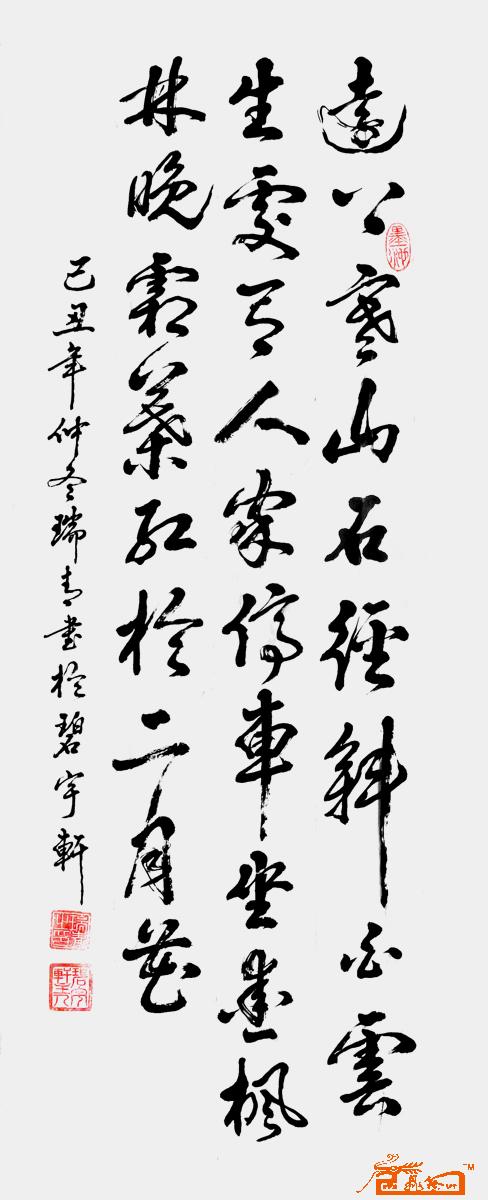 遠上寒山石徑斜白雲
生處有人家停車坐愛楓
林晚霜葉紅於二月花
己丑年仲冬瑞青書於碧宇軒